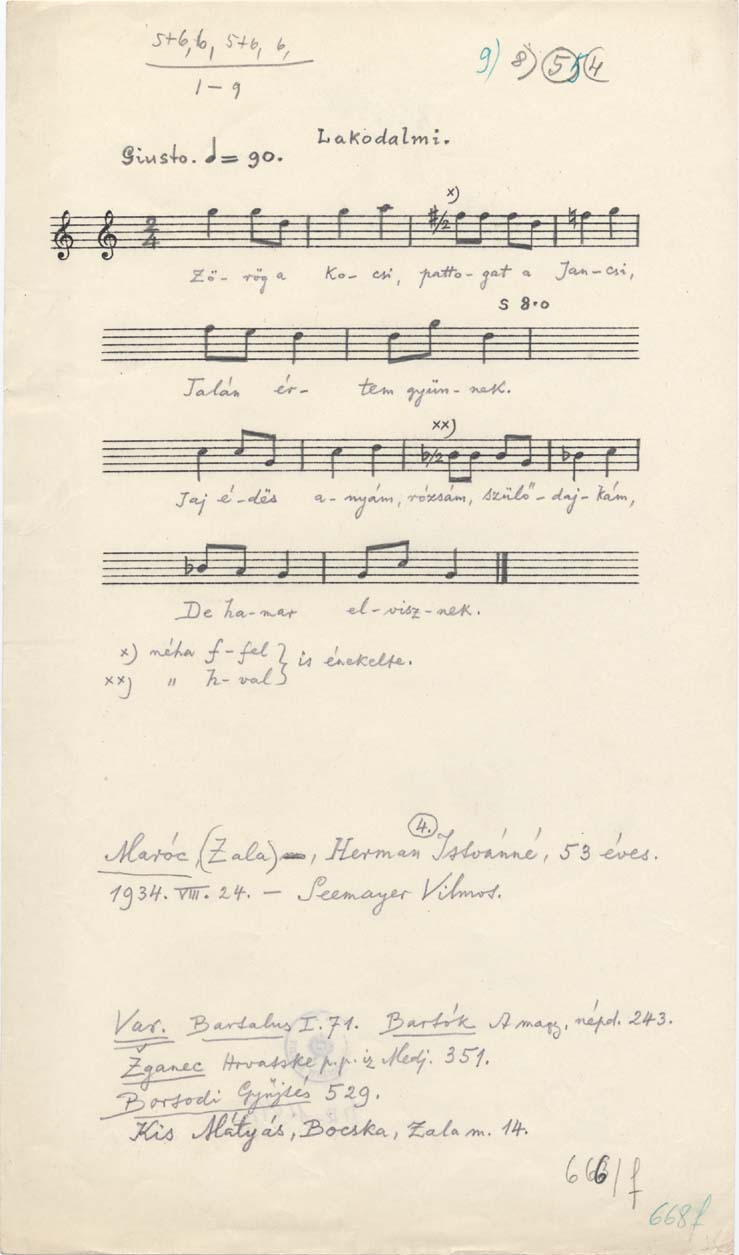 5+6, 6, 5+6, 6,
1 – 9
9) 8) 5 5 4
Lakodalmi.
Giusto. ♩= 90.
x)
2/4 #/2
Zö- rög a Ko- csi, patto- gat a Jan- csi,
S 8.0
Talán ér- tem gyün- nek.
xx)
b/2
Jaj é- dës a- nyám, rózsám, szülő- daj- kám,
De ha- mar el- visz- nek.
x) néha f-fel } is énekelte.
xx) " h-val }
4.
Maróc, (Zala), Herman Istvánné, 53 éves.
1934. VIII. 24. – Seemayer Vilmos.
Var. Bartalus I. 71. Bartók A magy. népd. 243.
Žganec Hrvatske p.p. iz Medj. 351.
Borsodi Gyűjtés 529.
Kis Mátyás, Bocska, Zala m. 14.
666/f
668f